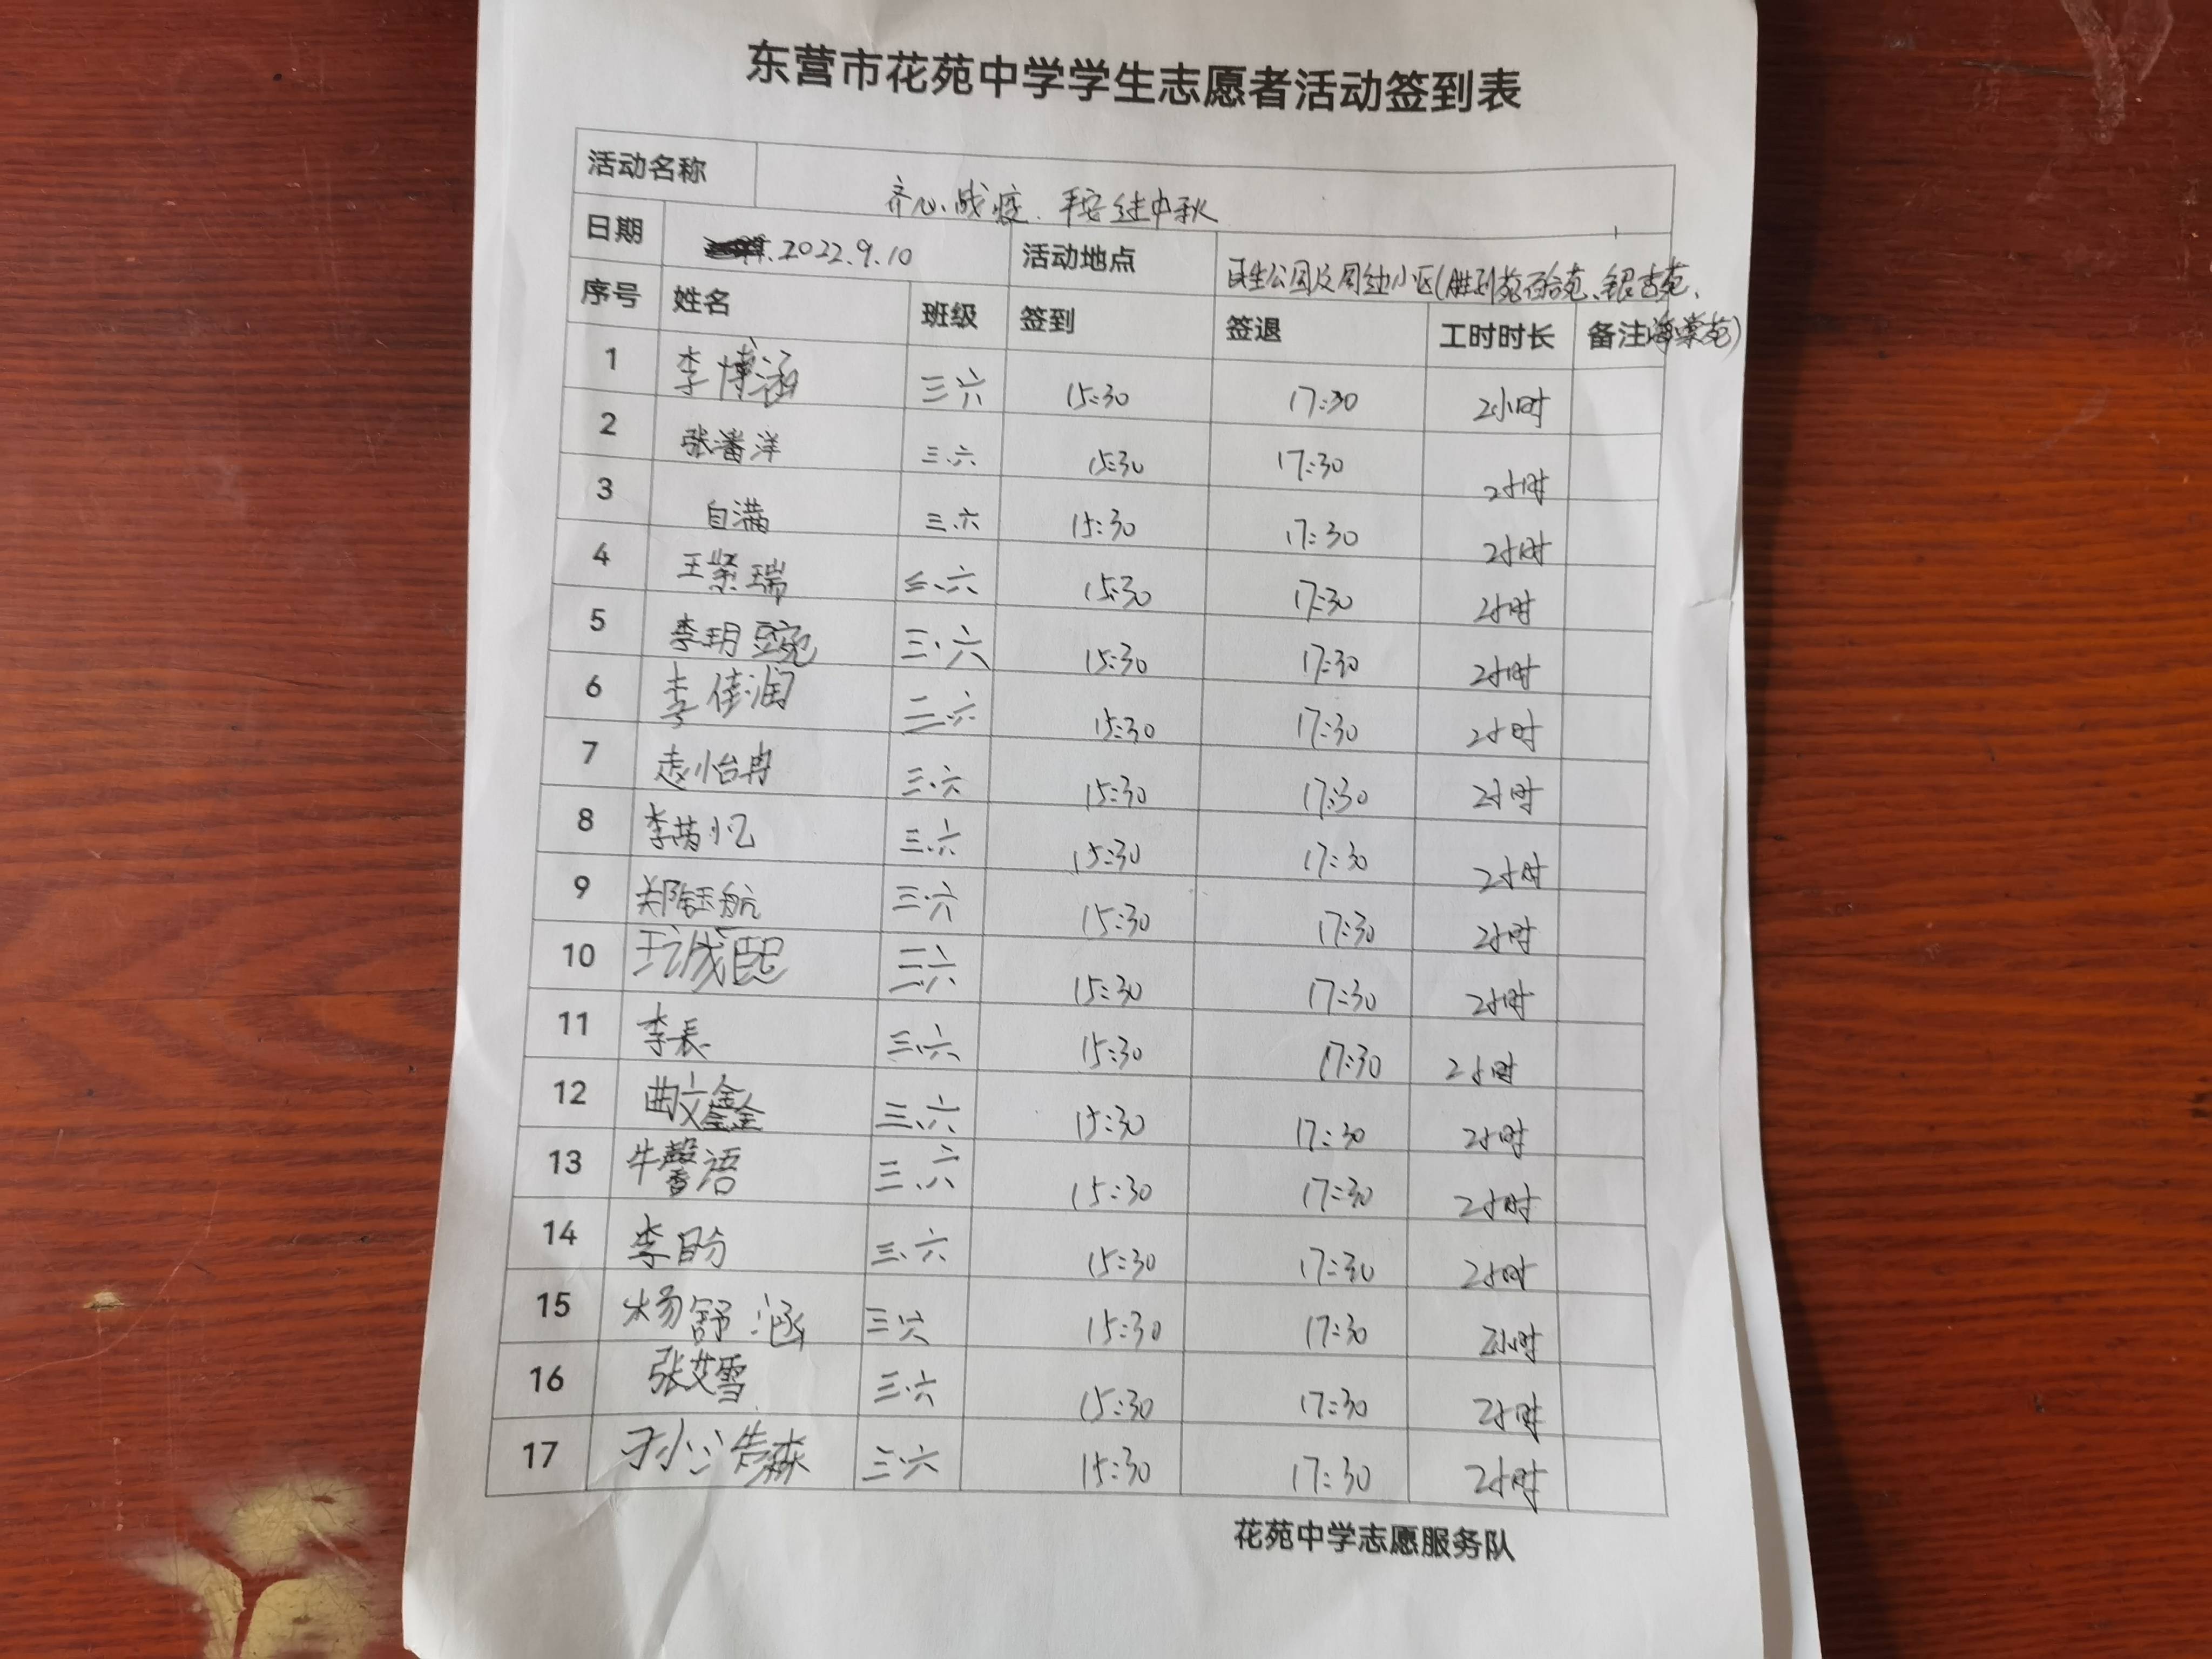 东营市花苑中学学生志愿者活动签到表
活动名称 齐心战疫.平安过中秋
日期 2022.9.10 活动地点 民生公园及周边小区(胜利苑百合苑、银杏苑、海棠苑)
序号 姓名 班级 签到 签退 工时时长 备注
1 李博涵 三六 15:30 17:30 2小时
2 张潘洋 三.六 15:30 17:30 2小时
3 自满 三.六 15:30 17:30 2小时
4 王紫瑞 三.六 15:30 17:30 2小时
5 李玥 三.六 15:30 17:30 2小时
6 李佳润 三.六 15:30 17:30 2小时
7 赵怡冉 三.六 15:30 17:30 2小时
8 李 忆 三.六 15:30 17:30 2小时
9 郑钰航 三.六 15:30 17:30 2小时
10 三六 15:30 17:30 2小时
11 李 三.六 15:30 17:30 2小时
12 曲文鑫 三.六 15:30 17:30 2小时
13 牛馨语 三.六 15:30 17:30 2小时
14 李盼 三.六 15:30 17:30 2小时
15 杨舒涵 三六 15:30 17:30 2小时
16 张艾雪 三.六 15:30 17:30 2小时
17 孙浩森 三.六 15:30 17:30 2小时
花苑中学志愿服务队